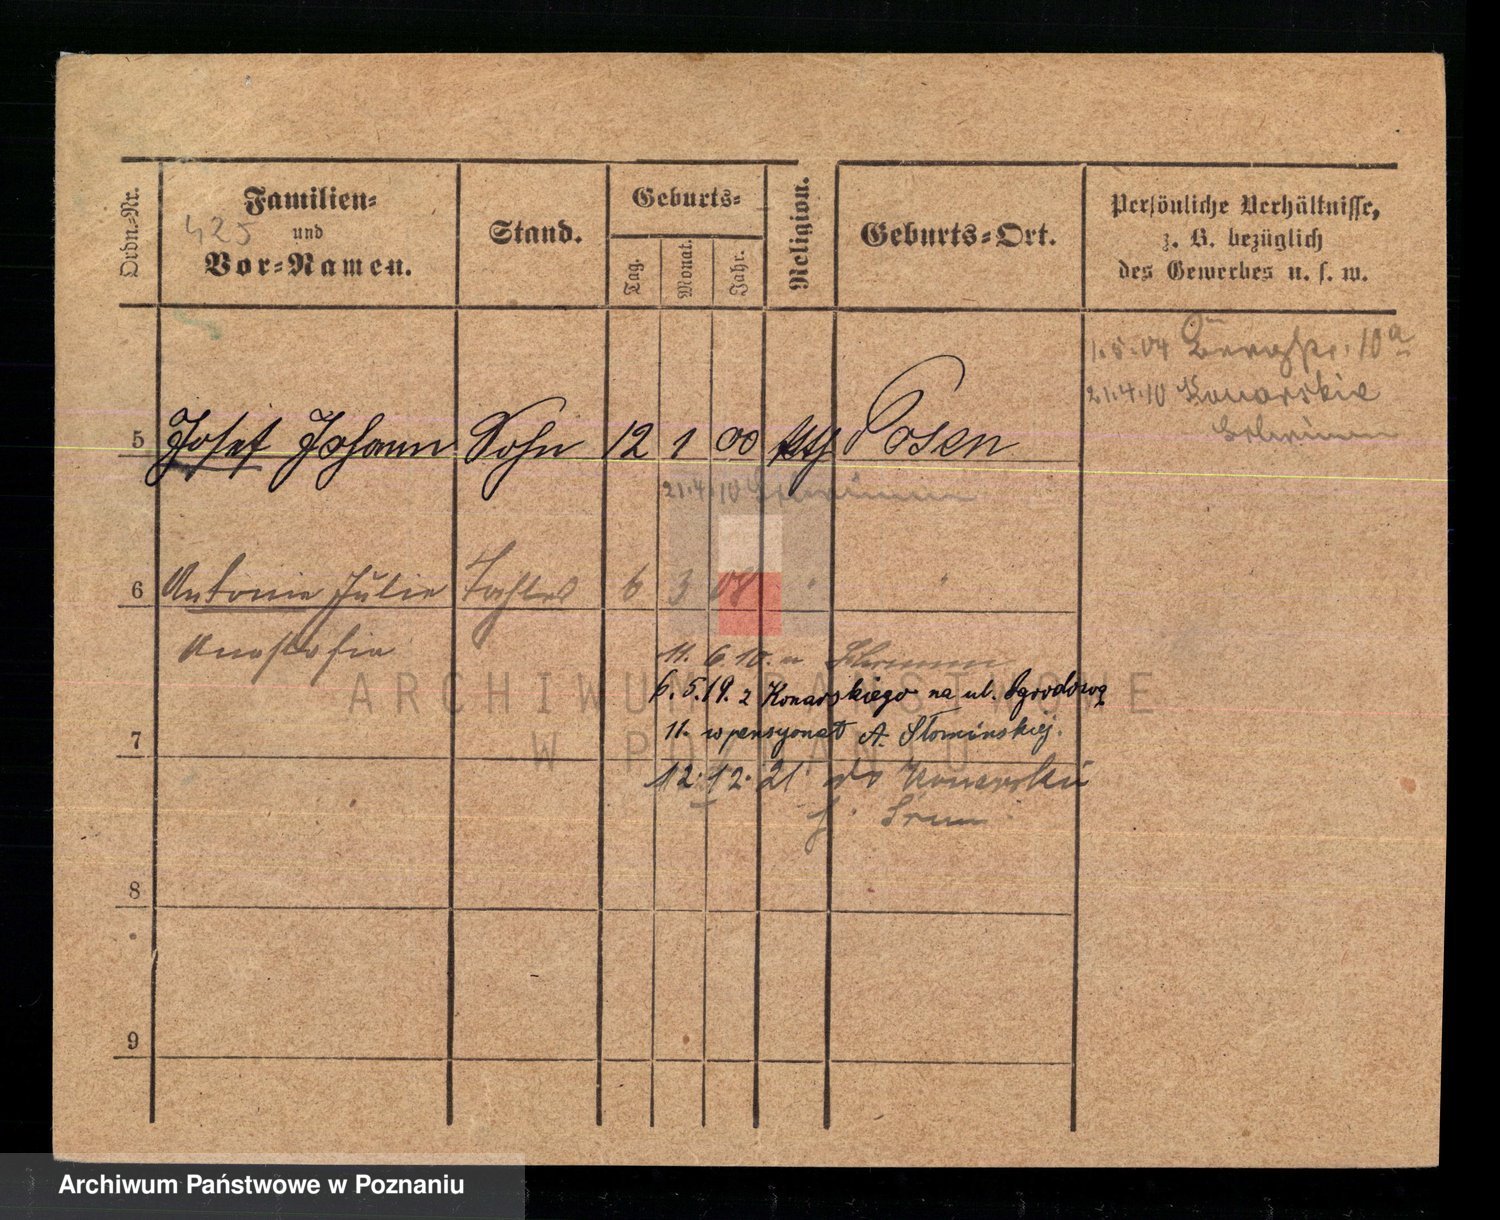 Ordn.-Nr.
Familien-
und
Vor-Namen.
425
Stand.
Geburts-
Tag.
Monat.
Jahr.
Religion.
Geburts-Ort.
Persönliche Verhältnisse,
z. B. bezüglich
des Gewerbes u. s. w.
1.5.04 Bergstr. 10a
21.4.10 Konarskie
Schrimm
5 Josef Johann Sohn 12 1 00 kth Posen
21.4.10 Schrimm
6 Antonie Julie Tochter 6 3 08 " "
Anastasia
11.6.10. Schrimm
6.5.19. z Konarskiego na ul. Ogrodową
11. w pensyonat A. Słomińskiej.
7
12.12.21 do Konarskie
Śrem
8
9
ARCHIWUM PAŃSTWOWE
W POZNANIU
Archiwum Państwowe w Poznaniu